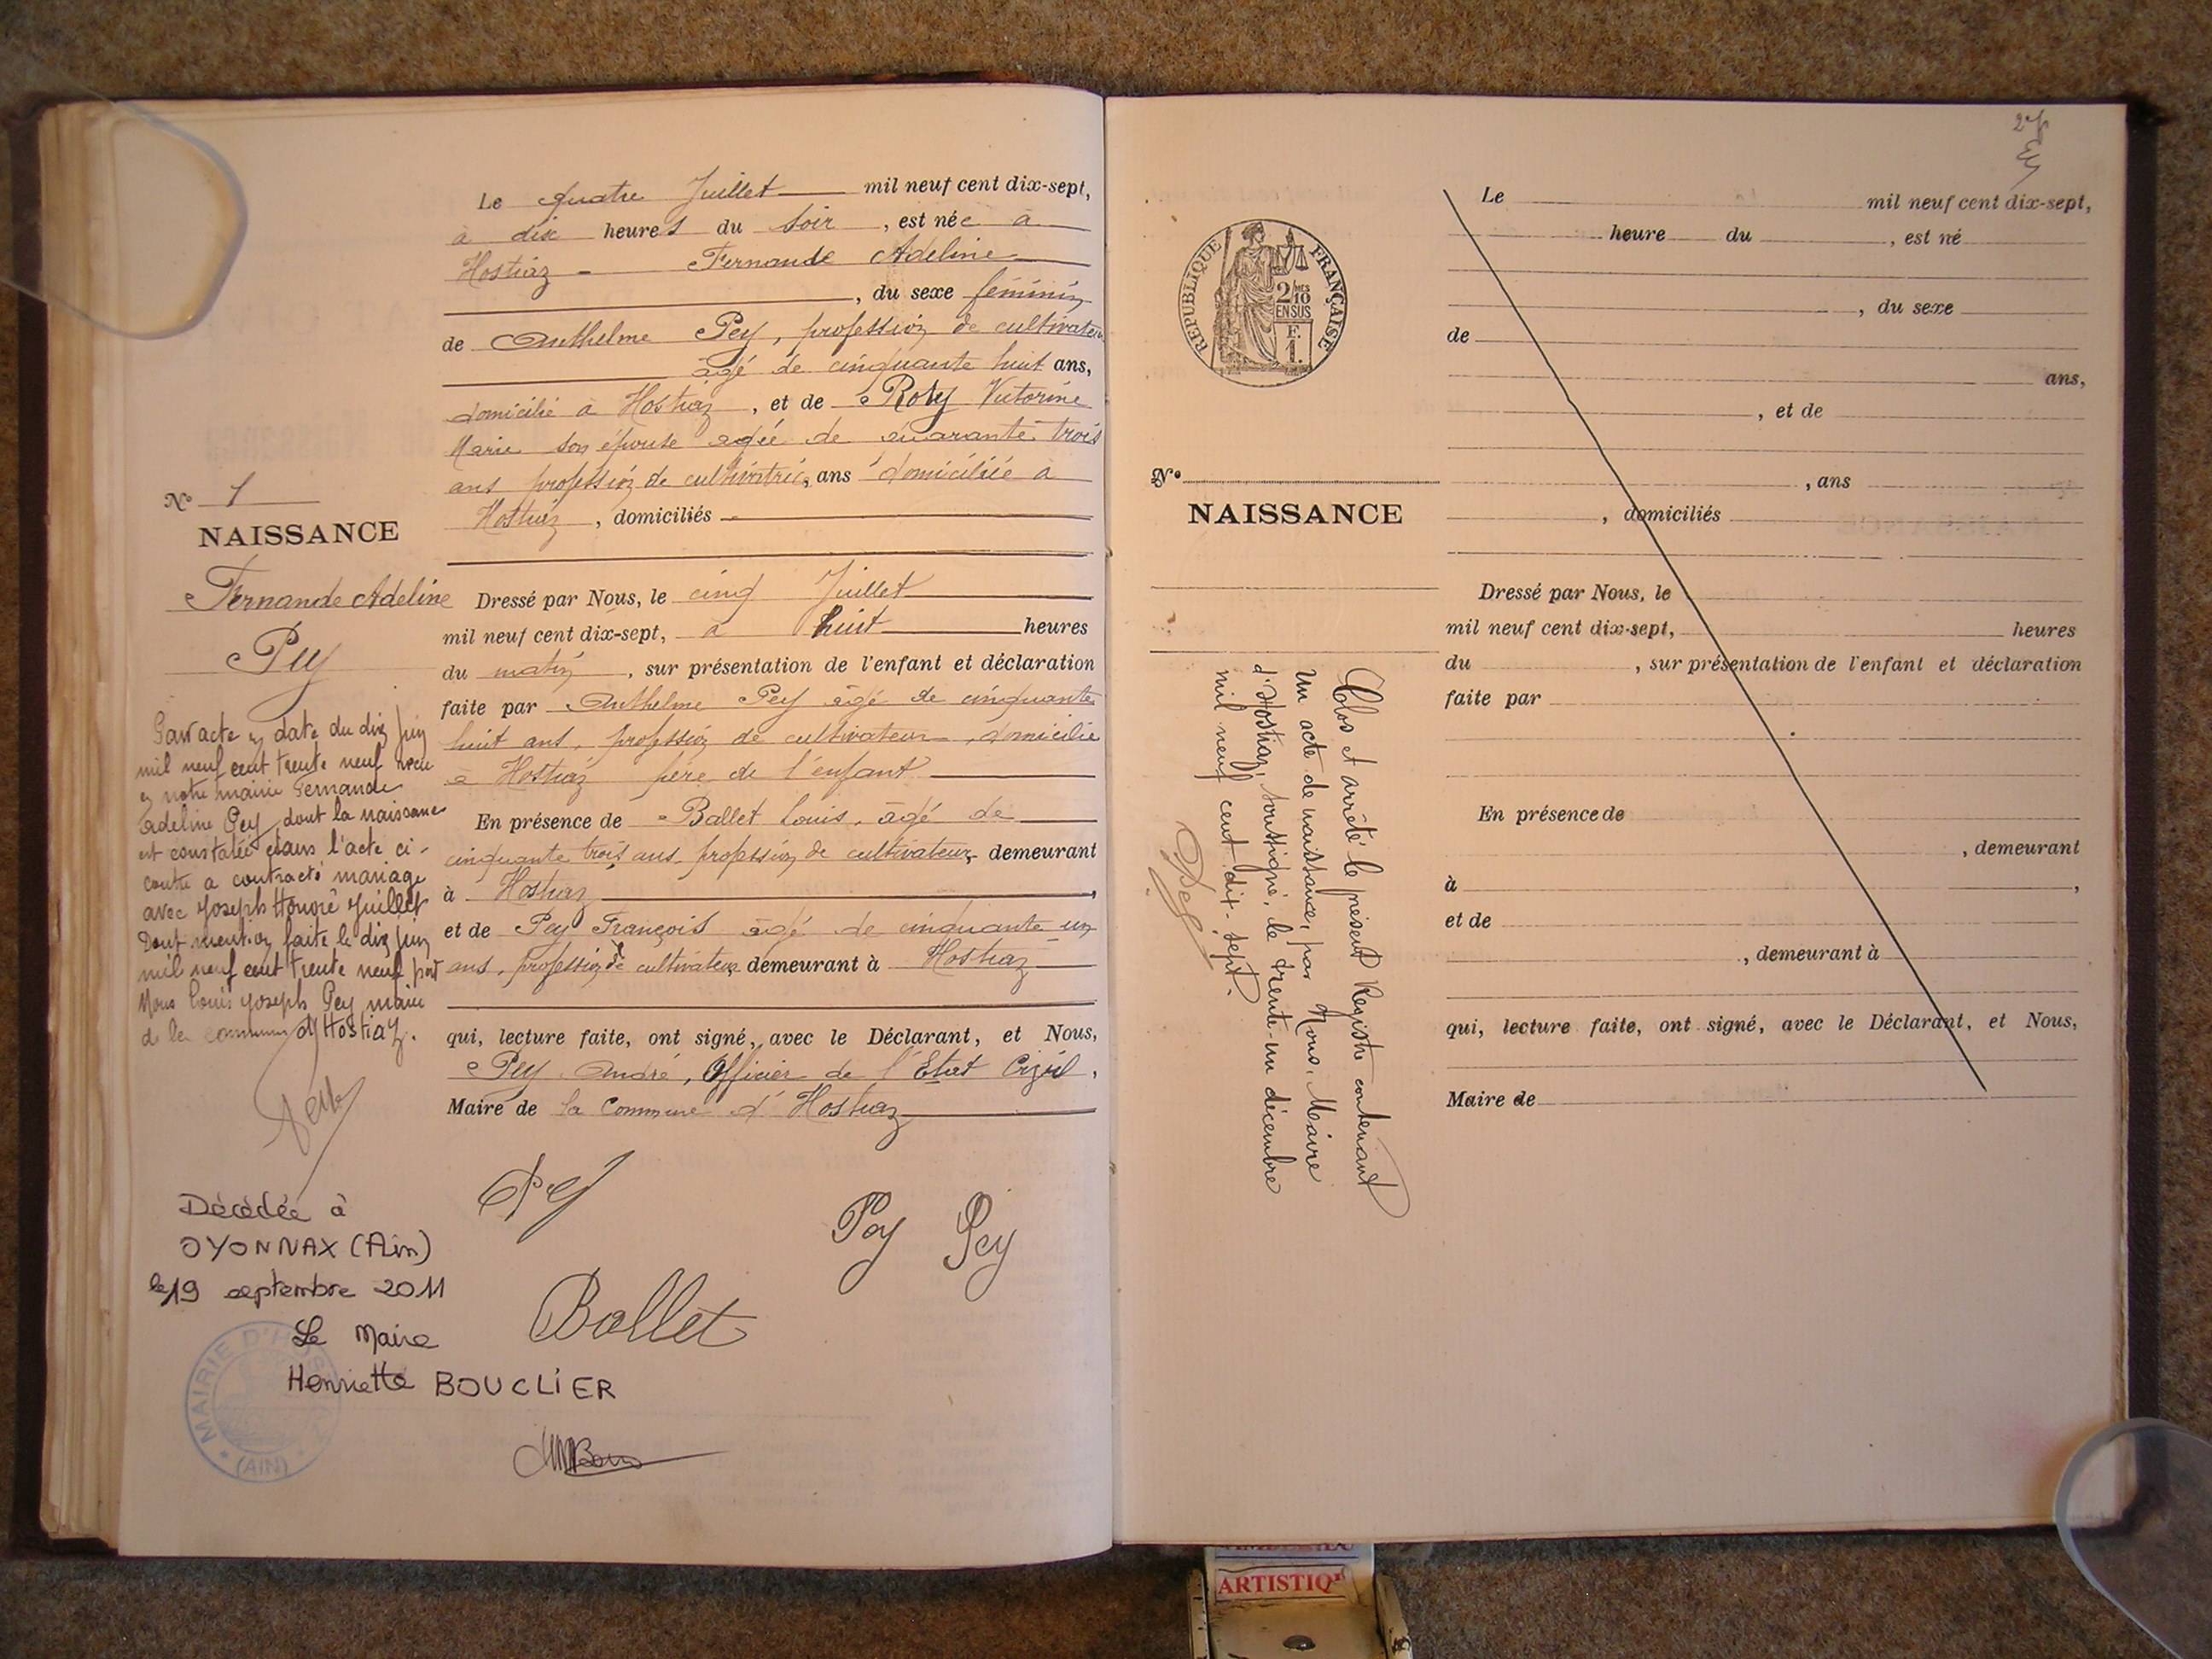 Le quatre Juillet mil neuf cent dix-sept,
à dix heures du soir, est née à
Hostiaz - Fernande Adeline
, du sexe féminin
de Anthelme Pey, profession de cultivateur
âgé de cinquante huit ans,
domicilié à Hostiaz, et de Roly Victorine
Marie son épouse agée de quarante trois
ans profession de cultivatrice, ans domiciliée à
Hostiaz, domiciliés
Dressé par Nous, le cinq Juillet
mil neuf cent dix-sept, à huit heures
du matin, sur présentation de l'enfant et déclaration
faite par Anthelme Pey âgé de cinquante
huit ans, profession de cultivateur, domicilié
à Hostiaz père de l'enfant
En présence de Ballet Louis, âgé de
cinquante trois ans, profession de cultivateur, demeurant
à Hostiaz,
et de Pey François âgé de cinquante un
ans, profession de cultivateur, demeurant à Hostiaz
qui, lecture faite, ont signé, avec le Déclarant, et Nous,
Pey André, Officier de l'Etat Civil,
Maire de la Commune d'Hostiaz
Pey
Pey Pey
Ballet
No 1
NAISSANCE
Fernande Adeline
Pey
Par acte en date du dix Juin
mil neuf cent trente neuf reçu
en notre mairie Fernande
adeline Pey, dont la naissance
est constatée dans l'acte ci-
contre a contracté mariage
avec Joseph Honoré Juillet
Dont mention faite le dix Juin
mil neuf cent trente neuf par
Nous Louis Joseph Pey maire
de la commune d'Hostiaz.
Pey
Décédée à
OYONNAX (Ain)
le 19 septembre 2011
Le Maire
Henriette BOUCLIER
MAIRIE D'HOSTIAZ
(AIN)
RÉPUBLIQUE FRANÇAISE
2/10 MES
EN SUS
F.
1.
No
NAISSANCE
Clos et arrêté le présent Registre contenant
un acte de naissance, par Nous, Maire
d'Hostiaz, soussigné, le trente-un décembre
mil neuf cent dix-sept.
Pey
Le mil neuf cent dix-sept,
heure du , est né
, du sexe
de
ans,
, et de
, ans
, domiciliés
Dressé par Nous, le
mil neuf cent dix-sept, heures
du , sur présentation de l'enfant et déclaration
faite par
En présence de
, demeurant
à ,
et de
, demeurant à
qui, lecture faite, ont signé, avec le Déclarant, et Nous,
Maire de
ARTISTIQ